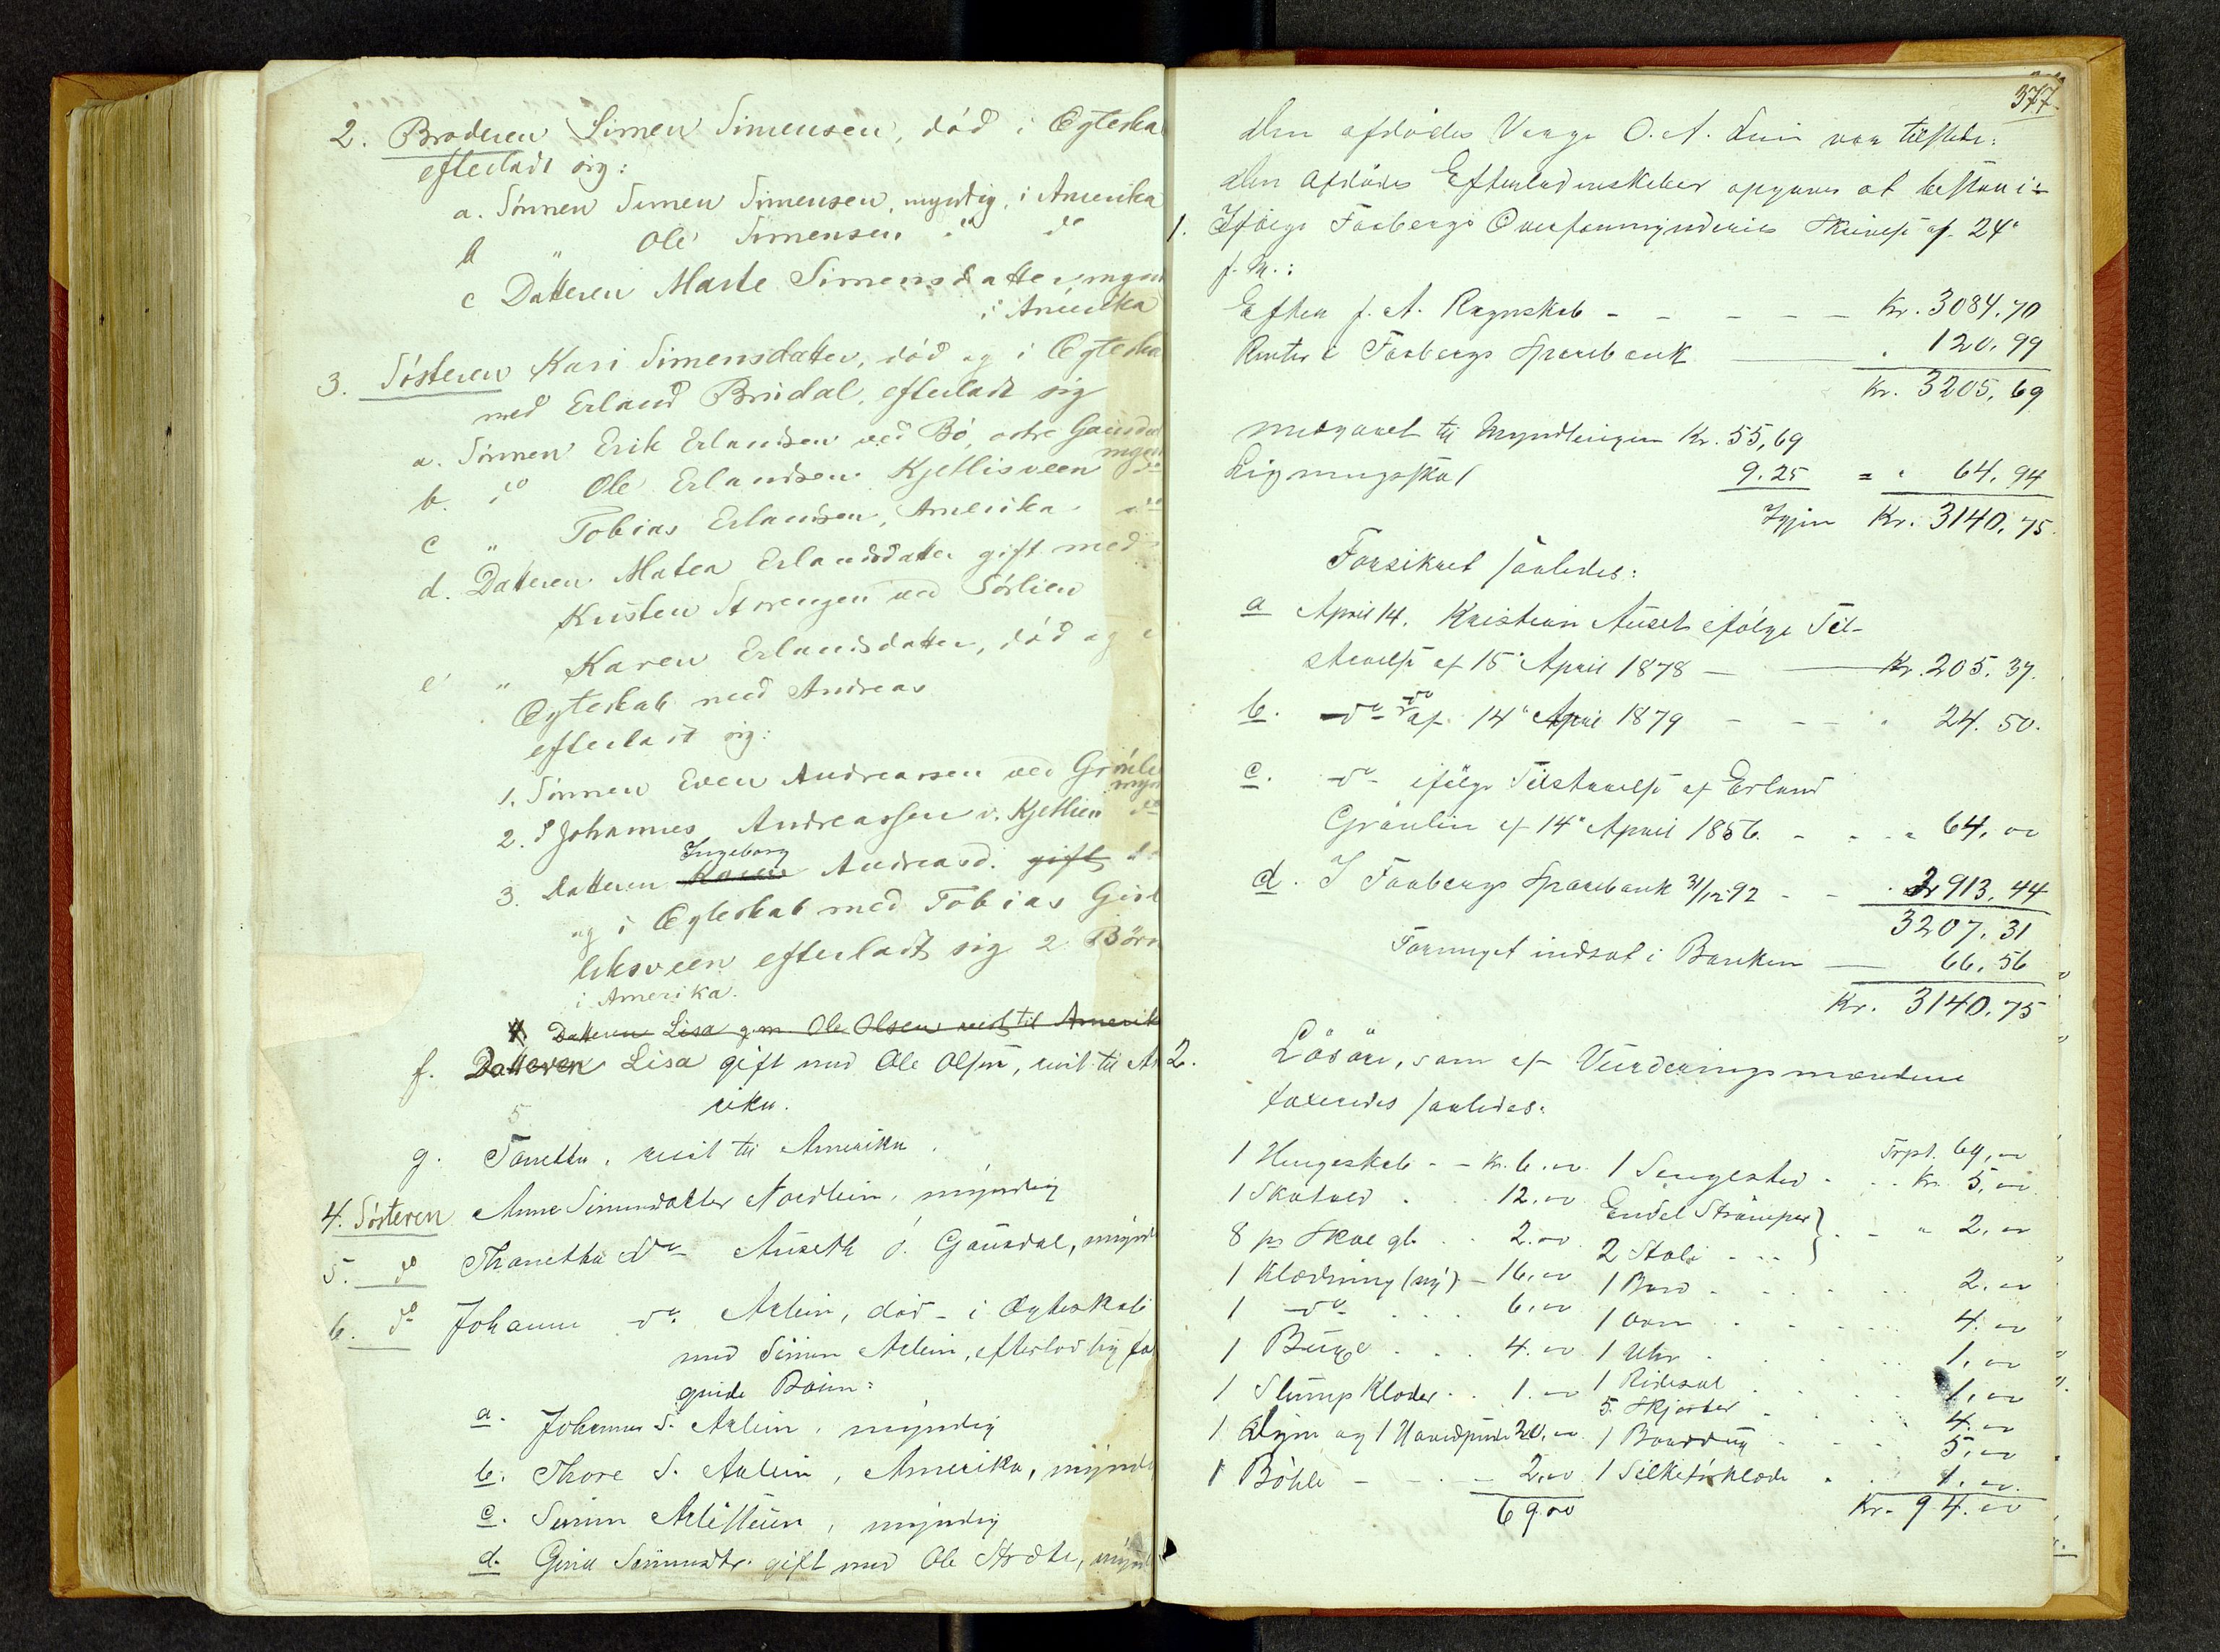 2. Broderen Simen Simensen, död i Ægteska
efterladt sig:
a. Sönnen Simen Simensen, myndig, i Amerika
b " Ole Simensen do do
c Datteren Marte Simensdatter, mynd
i Amerika
3. Sösteren Kari Simensdatter, död og i Ægteska
med Erland Brudal, efterladt sig
a. Sönnen Erik Erlandsen ved Bö, östre Gausdal
mynd
b. do Ole Erlandsen Kjetlisveen do
c " Tobias Erlandsen, Amerika do
d. Datteren Matea Erlandsdatter gift med
Kristen Storengen ved Sörlien
e " Karen Erlandsdatter, död og i
Ægteskab med Andreas
efterladt sig:
1. Sönnen Even Andreassen ved Grönli
mynd
2. S Johannes Andreassen v. Kjetlien do
3. Datteren Karen Ingeborg Andreasd. gift
og i Ægteskab med Tobias
efterladt sig 2 Börn
i Amerika.
4. Datteren Lisa g.m. Ole Olsen reist til Amerik
f. Datteren Lisa gift med Ole Olsen, reist til Am
rika.
5
g. Tonetta, reist til Amerika.
4. Sösteren Anne Simensdatter Nordlien, myndig
5. do Thonetha do Auseth ö. Gausdal, mynd
6. do Johanne do Aalien, död - i Ægteskab
med Simen Aalien, efterlod sig föl
gende Börn:
a. Johannes S. Aalien, myndig
b. Thore S. Aalien, Amerika, mynd
c. Simen, myndig
d. Gina Simensdtr. gift med Ole, mynd
377.
Den afdödes Værge O. A. Lien var tilstede.
Den Afdödes Efterladenskaber opgaves at bestaa i:
1. Ifölge Faabergs Overformynderies Skrivelse af 24'
f. M.:
Efter f. A. Regnskab - - - - - Kr. 3084.70
Renter i Faabergs Sparebank " 120.99
Kr. 3205,69
medgaaet til Myndlingen Kr. 55,69
Ligningsskat 9.25 = " 64.94
Igjen Kr. 3140,75.
Forsikret saaledes:
a April 14. Kristian Auset ifölge Til-
staaelse af 15' April 1878 - Kr. 205.37.
b. do do af 14' April 1879 - - - " 24.50.
c. do ifölge Tilstaaelse af Erland
Grönlien af 14' April 1856. - - " 64,00
d. I Faabergs Sparebank 31/12 92 - - 2913,44
3207.31
Formeget indsat i Banken - 66,56
Kr. 3140,75
2. Lösöre, som af Vurderingsmændene
taxeredes saaledes:
Trpt. 69,00
1 Hengeskab - - Kr. 6.00 1 Sengested - - Kr. 5,00
1 Skatol . . 12.00 Endel Strömper } - - " 2,00
8 pr . . 2.00 2 Stole - - }
1 Klædning (ny) - 16,00 1 Bord - - - 2.00
1 do . . . 6,00 1 Ovn . . . 4.00
1 Buxe . . . 4.00 1 Uhr . . . 1,00
1 Slump Klæder . . 1.00 1 Ridesal . . . 1,00
5 Skjorter . . 4.00
1 Dyne og 1 Hovedpude 20.00 1 Borddug - - - 5,00
1 Böhle - - - 2,00 1 Silketörklæde . . 1.00
69.00 Kr. 94.00